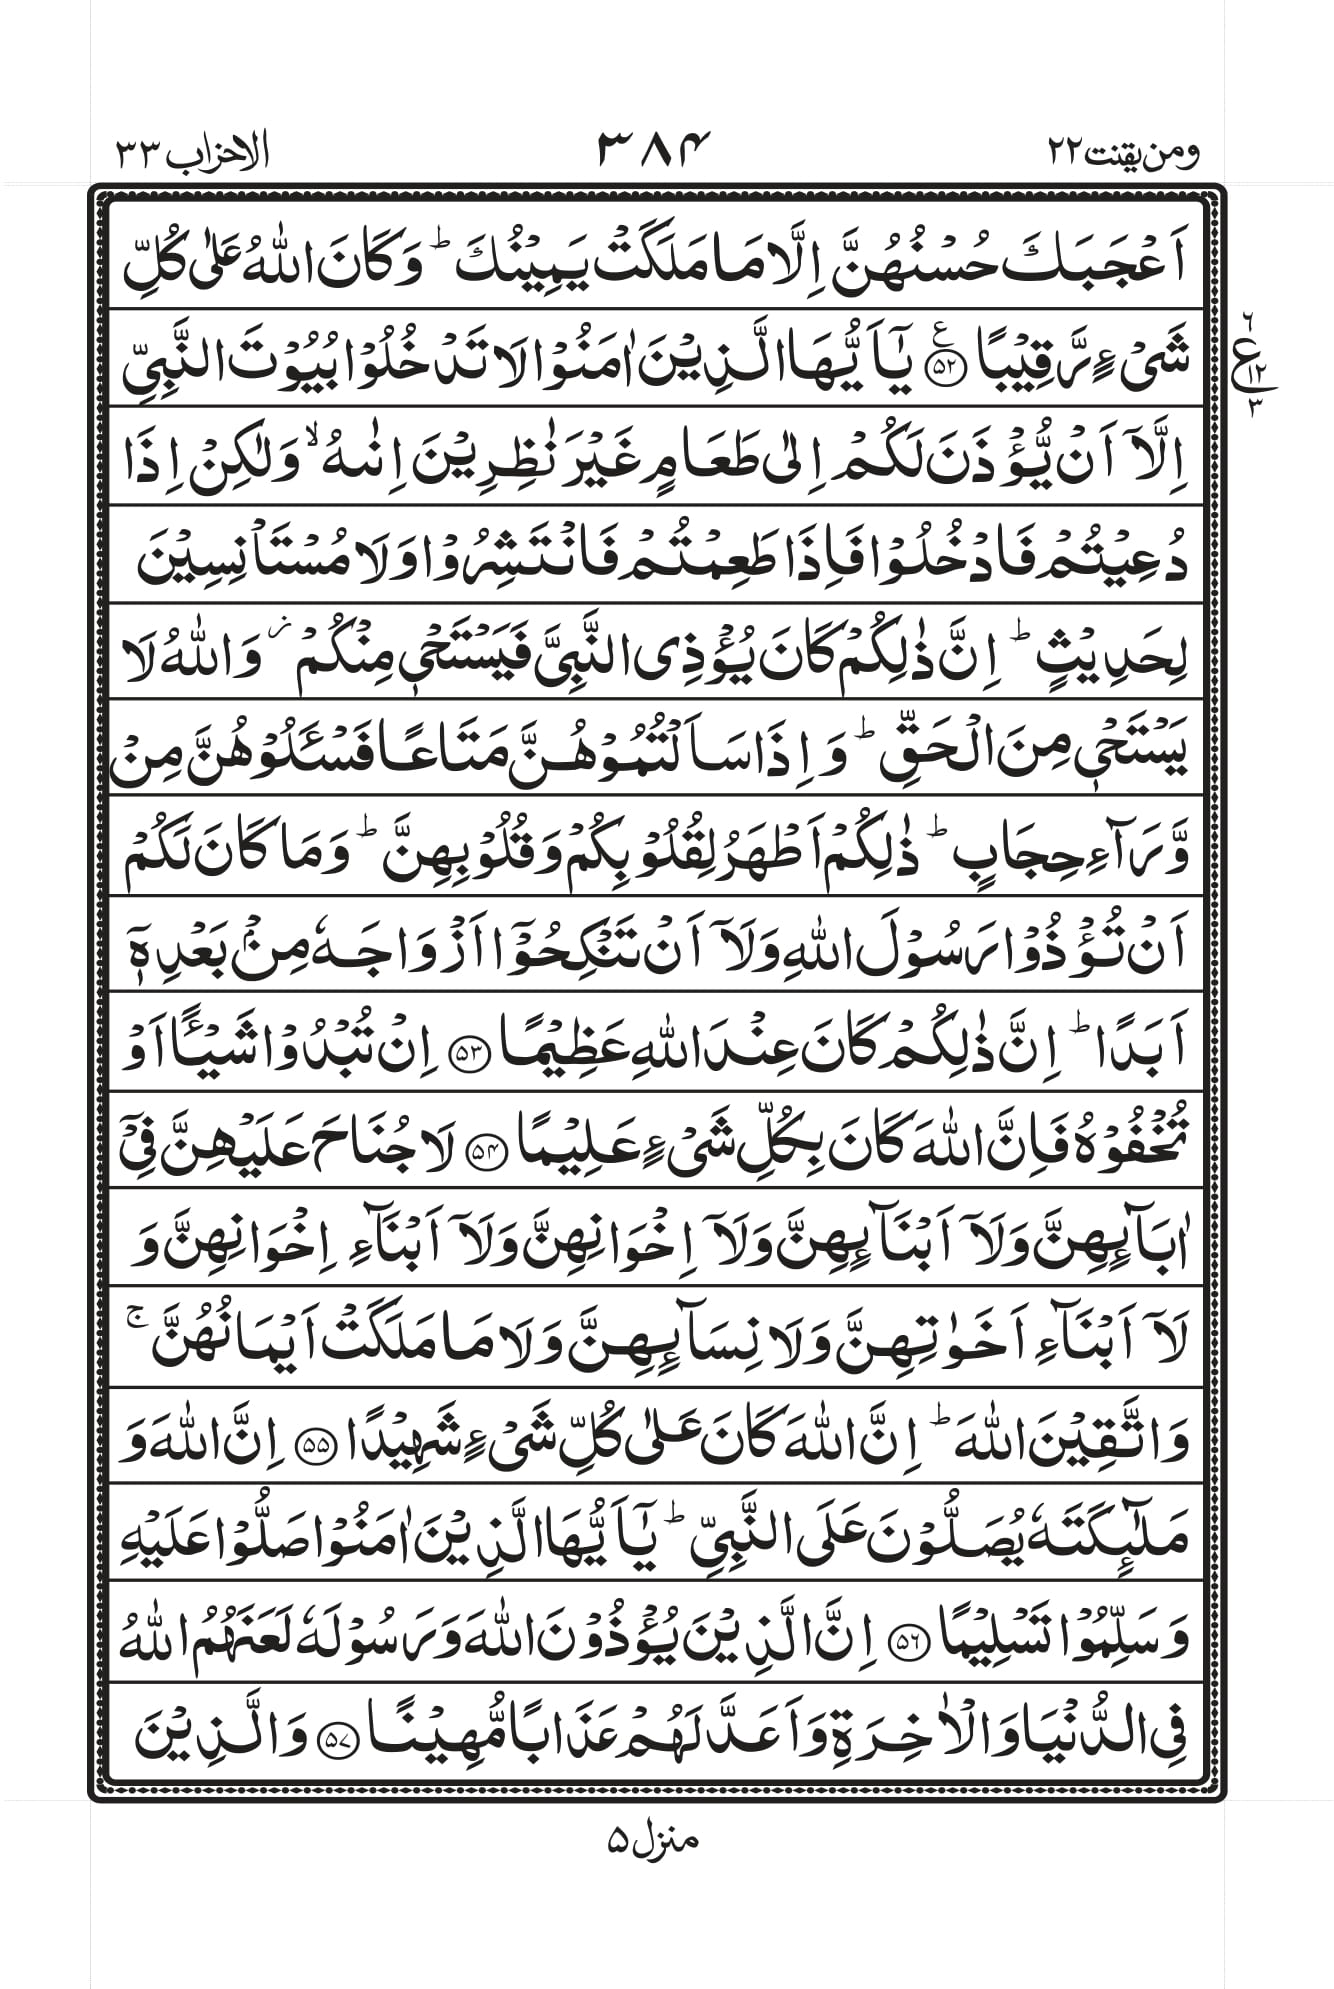 ومن یقنت ۲۲
۳۸۴
الاحزاب ۳۳
اَعۡجَبَكَ حُسۡنُهُنَّ اِلَّا مَا مَلَكَتۡ يَمِيۡنُكَ ؕ وَكَانَ اللّٰهُ عَلٰى كُلِّ
شَىۡءٍ رَّقِيۡبًا ۵۲ ع يٰۤاَيُّهَا الَّذِيۡنَ اٰمَنُوۡا لَا تَدۡخُلُوۡا بُيُوۡتَ النَّبِىِّ
۶
ع
۱۲
۳
اِلَّاۤ اَنۡ يُّؤۡذَنَ لَكُمۡ اِلٰى طَعَامٍ غَيۡرَ نٰظِرِيۡنَ اِنٰٮهُ ۙ وَلٰكِنۡ اِذَا
دُعِيۡتُمۡ فَادۡخُلُوۡا فَاِذَا طَعِمۡتُمۡ فَانْتَشِرُوۡا وَلَا مُسۡتَاۡنِسِيۡنَ
لِحَدِيۡثٍ ؕ اِنَّ ذٰلِكُمۡ كَانَ يُؤۡذِى النَّبِىَّ فَيَسۡتَحۡىٖ مِنۡكُمۡ ز وَاللّٰهُ لَا
يَسۡتَحۡىٖ مِنَ الۡحَقِّ ؕ وَاِذَا سَاَ لۡتُمُوۡهُنَّ مَتَاعًا فَسۡـَٔـلُوۡهُنَّ مِنۡ
وَّرَآءِ حِجَابٍ ؕ ذٰلِكُمۡ اَطۡهَرُ لِقُلُوۡبِكُمۡ وَقُلُوۡبِهِنَّ ؕ وَمَا كَانَ لَكُمۡ
اَنۡ تُؤۡذُوۡا رَسُوۡلَ اللّٰهِ وَلَاۤ اَنۡ تَنۡكِحُوۡۤا اَزۡوَاجَهٗ مِنۡۢ بَعۡدِهٖۤ
اَبَدًا ؕ اِنَّ ذٰلِكُمۡ كَانَ عِنۡدَ اللّٰهِ عَظِيۡمًا ۵۳ اِنۡ تُبۡدُوۡا شَيۡـًٔا اَوۡ
تُخۡفُوۡهُ فَاِنَّ اللّٰهَ كَانَ بِكُلِّ شَىۡءٍ عَلِيۡمًا ۵۴ لَا جُنَاحَ عَلَيۡهِنَّ فِىۡۤ
اٰبَآئِهِنَّ وَلَاۤ اَبۡنَآئِهِنَّ وَلَاۤ اِخۡوَانِهِنَّ وَلَاۤ اَبۡنَآءِ اِخۡوَانِهِنَّ وَ
لَاۤ اَبۡنَآءِ اَخَوٰتِهِنَّ وَلَا نِسَآئِهِنَّ وَلَا مَا مَلَكَتۡ اَيۡمَانُهُنَّ ۚ
وَاتَّقِيۡنَ اللّٰهَ ؕ اِنَّ اللّٰهَ كَانَ عَلٰى كُلِّ شَىۡءٍ شَهِيۡدًا ۵۵ اِنَّ اللّٰهَ وَ
مَلٰٓئِكَتَهٗ يُصَلُّوۡنَ عَلَى النَّبِىِّ ؕ يٰۤاَيُّهَا الَّذِيۡنَ اٰمَنُوۡا صَلُّوۡا عَلَيۡهِ
وَسَلِّمُوۡا تَسۡلِيۡمًا ۵۶ اِنَّ الَّذِيۡنَ يُؤۡذُوۡنَ اللّٰهَ وَرَسُوۡلَهٗ لَعَنَهُمُ اللّٰهُ
فِى الدُّنۡيَا وَالۡاٰخِرَةِ وَاَعَدَّ لَهُمۡ عَذَابًا مُّهِيۡنًا ۵۷ وَالَّذِيۡنَ
منزل ۵